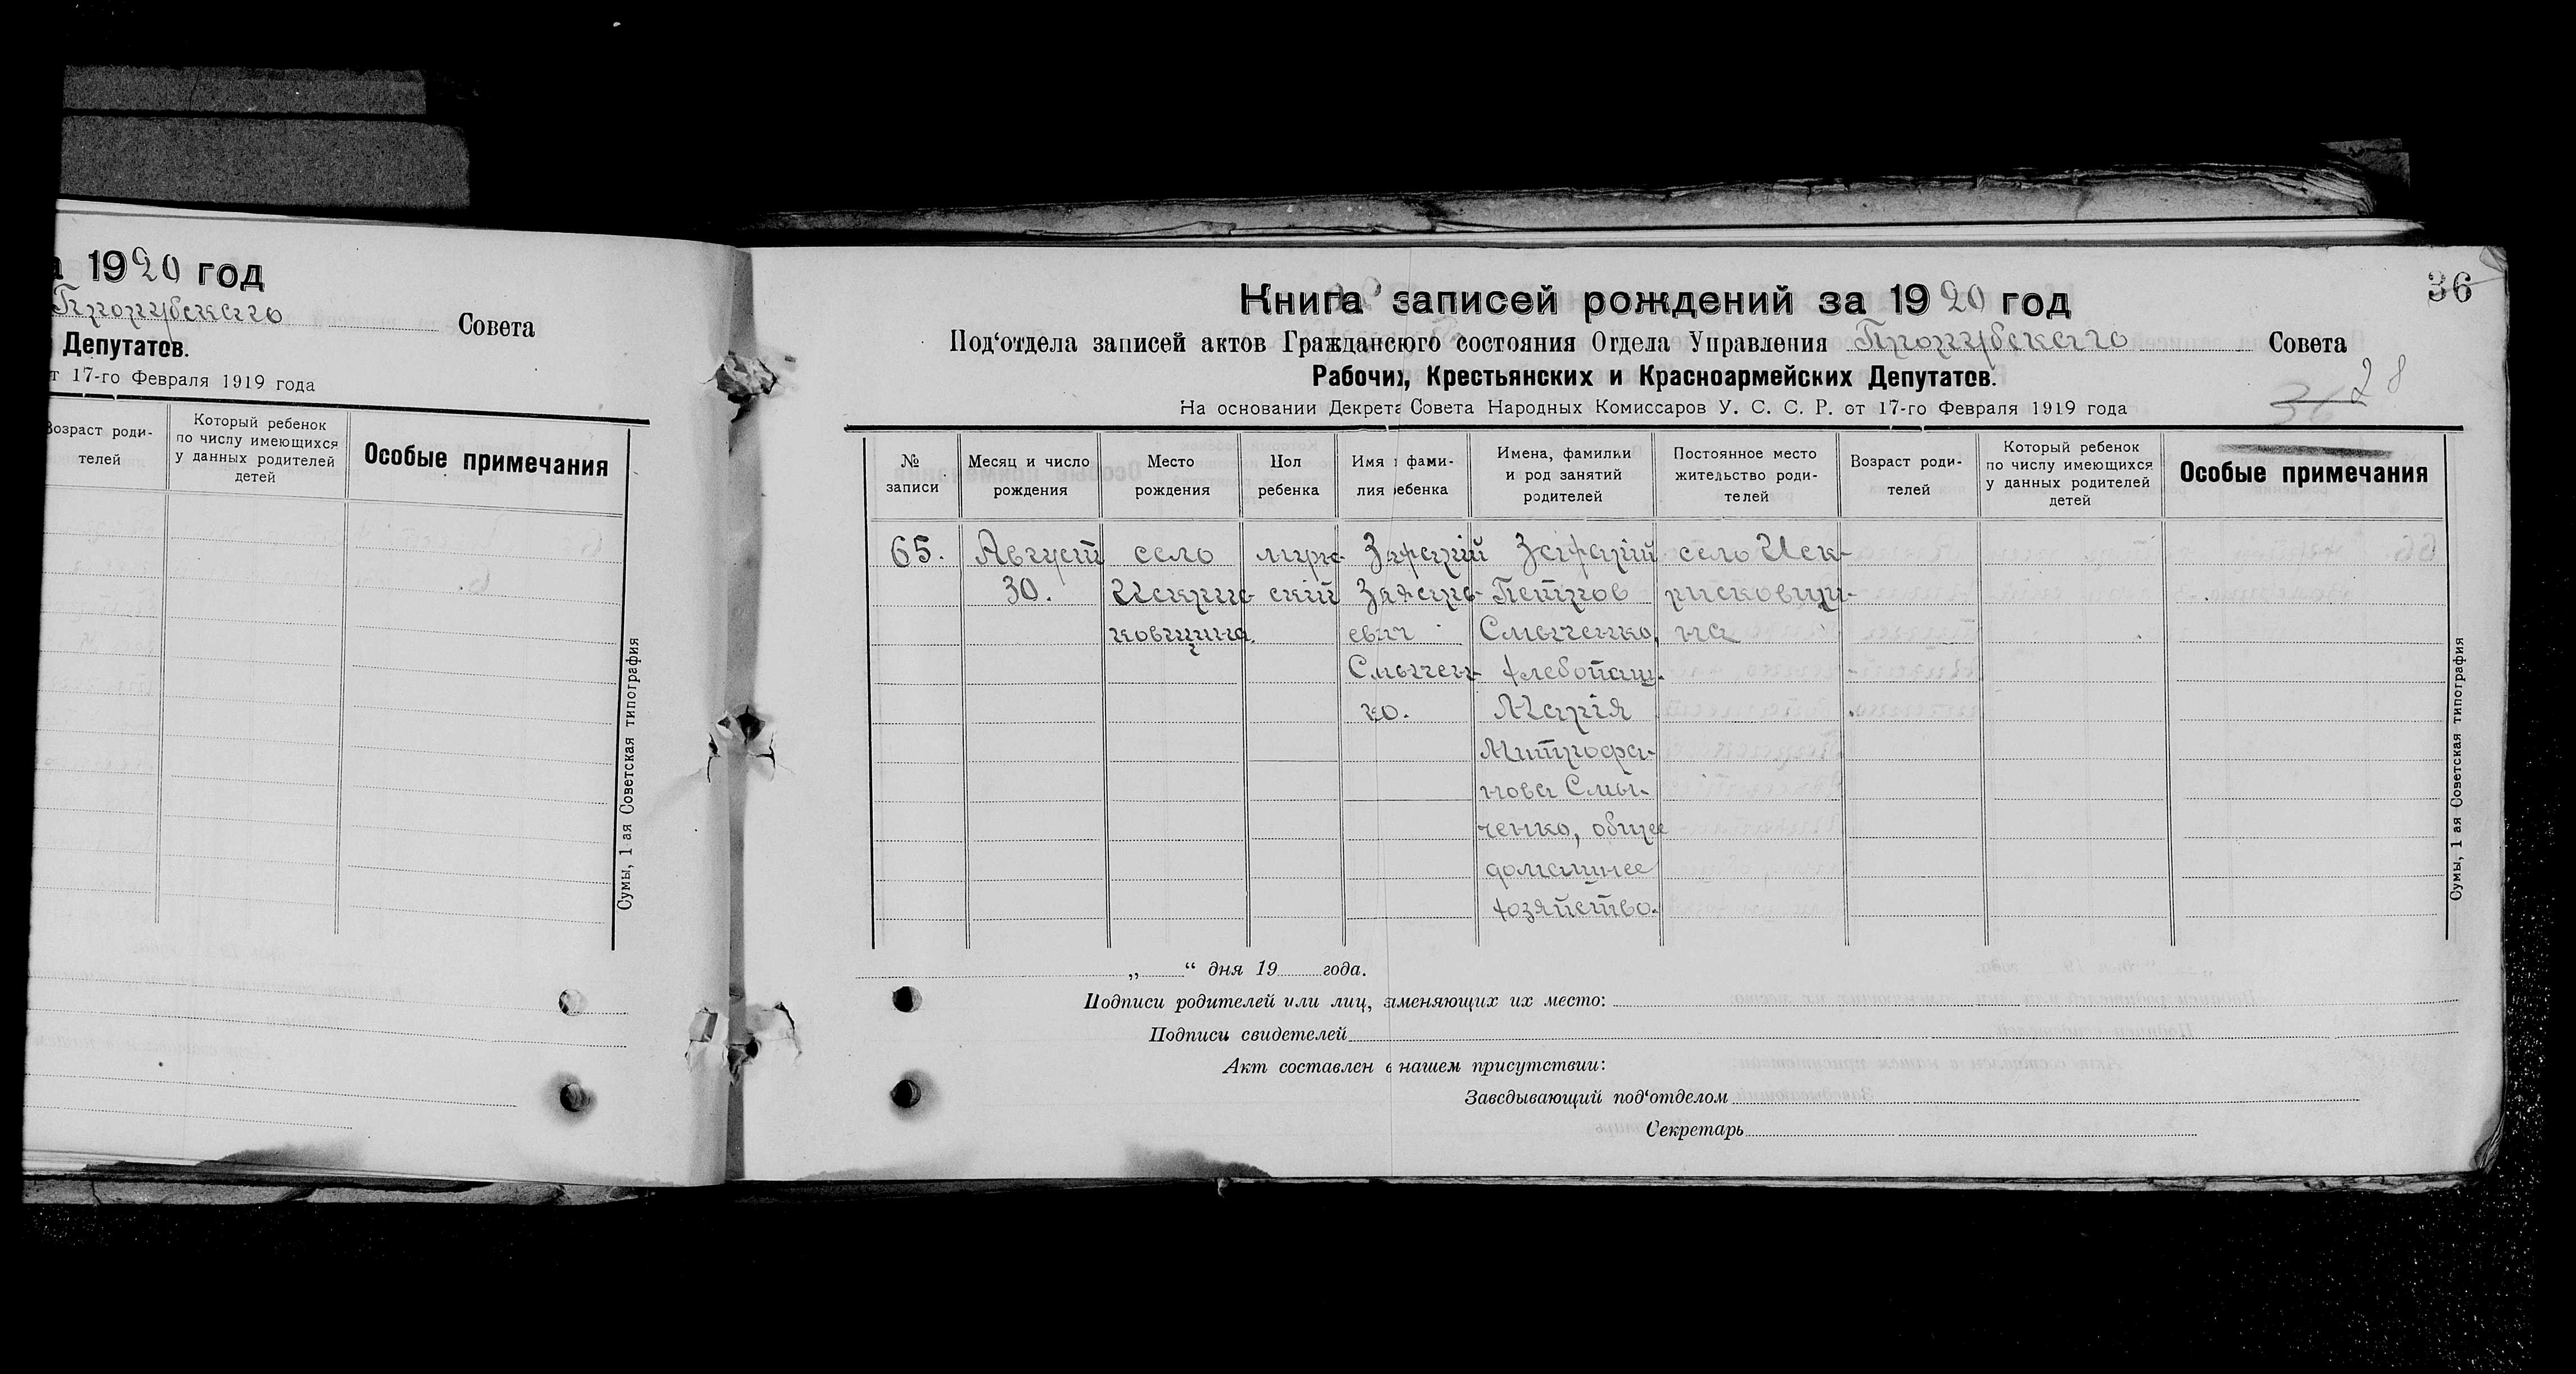 1920 год
Совета
Депутатов.
т 17-го Февраля 1919 года
Возраст роди-
телей
Который ребенок
по числу имеющихся
у данных родителей
детей
Особые примечания
Сумы, 1 ая Советская типография
36
Книга записей рождений за 1920 год
Под‘отдела записей актов Гражданского состояния Отдела Управления Совета
Рабочих, Крестьянских и Красноармейских Депутатов.
28
36
На основании Декрета Совета Народных Комиссаров У. С. С. Р. от 17-го Февраля 1919 года
№
записи
Месяц и число
рождения
Место
рождения
Пол
ребенка
Имя и фами-
лия ребенка
Имена, фамилии
и род занятий
родителей
Постоянное место
жительство роди-
телей
Возраст роди-
телей
Который ребенок
по числу имеющихся
у данных родителей
детей
Особые примечания
65.
Август
30.
село
Искрис-
ковщина.
муж-
ский
Захарий
Захарь-
евич
Смычен-
ко.
Захарий
Петров
Смыченко,
хлебопаш.
Марія
Митрофа-
нова Смы-
ченко, общее
домашнее
хозяйство.
село Иск-
рисковщи-
на
Сумы, 1 ая Советская типография
„ “ дня 19 года.
Подписи родителей или лиц, заменяющих их место:
Подписи свидетелей
Акт составлен в нашем присутствии:
Заведывающий под‘отделом
Секретарь